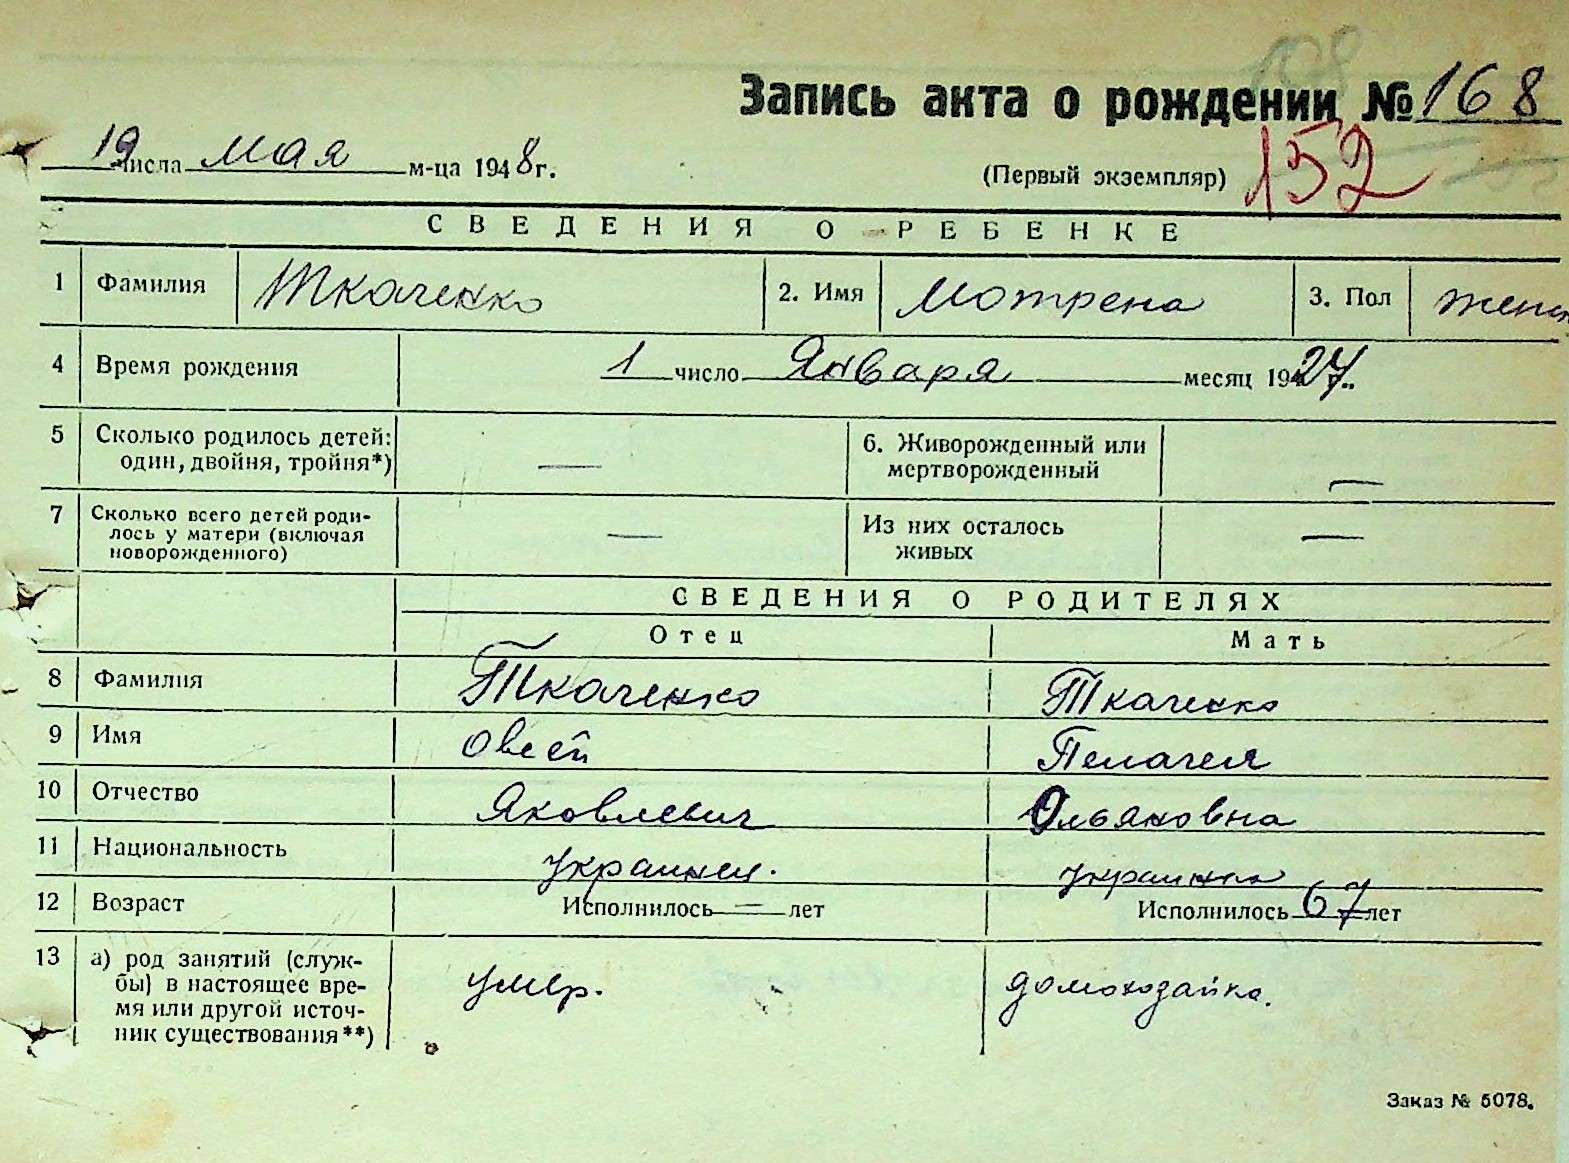 Запись акта о рождении № 168
19 числа мая м-ца 1948 г.
(Первый экземпляр) 152
СВЕДЕНИЯ О РЕБЕНКЕ
1 Фамилия Ткаченко 2. Имя Мотрена 3. Пол женск
4 Время рождения 1 число Января месяц 1927 г.
5 Сколько родилось детей: — 6. Живорожденный или
один, двойня, тройня*) мертворожденный —
7 Сколько всего детей роди- Из них осталось
лось у матери (включая — живых —
новорожденного)
СВЕДЕНИЯ О РОДИТЕЛЯХ
Отец Мать
8 Фамилия Ткаченко Ткаченко
9 Имя Овсей Пелагея
10 Отчество Яковлевич Ольяновна
11 Национальность украинец. украинка
12 Возраст Исполнилось — лет Исполнилось 67 лет
13 а) род занятий (служ- умер. домохозайка.
бы) в настоящее вре-
мя или другой источ-
ник существования**)
Заказ № 5078.